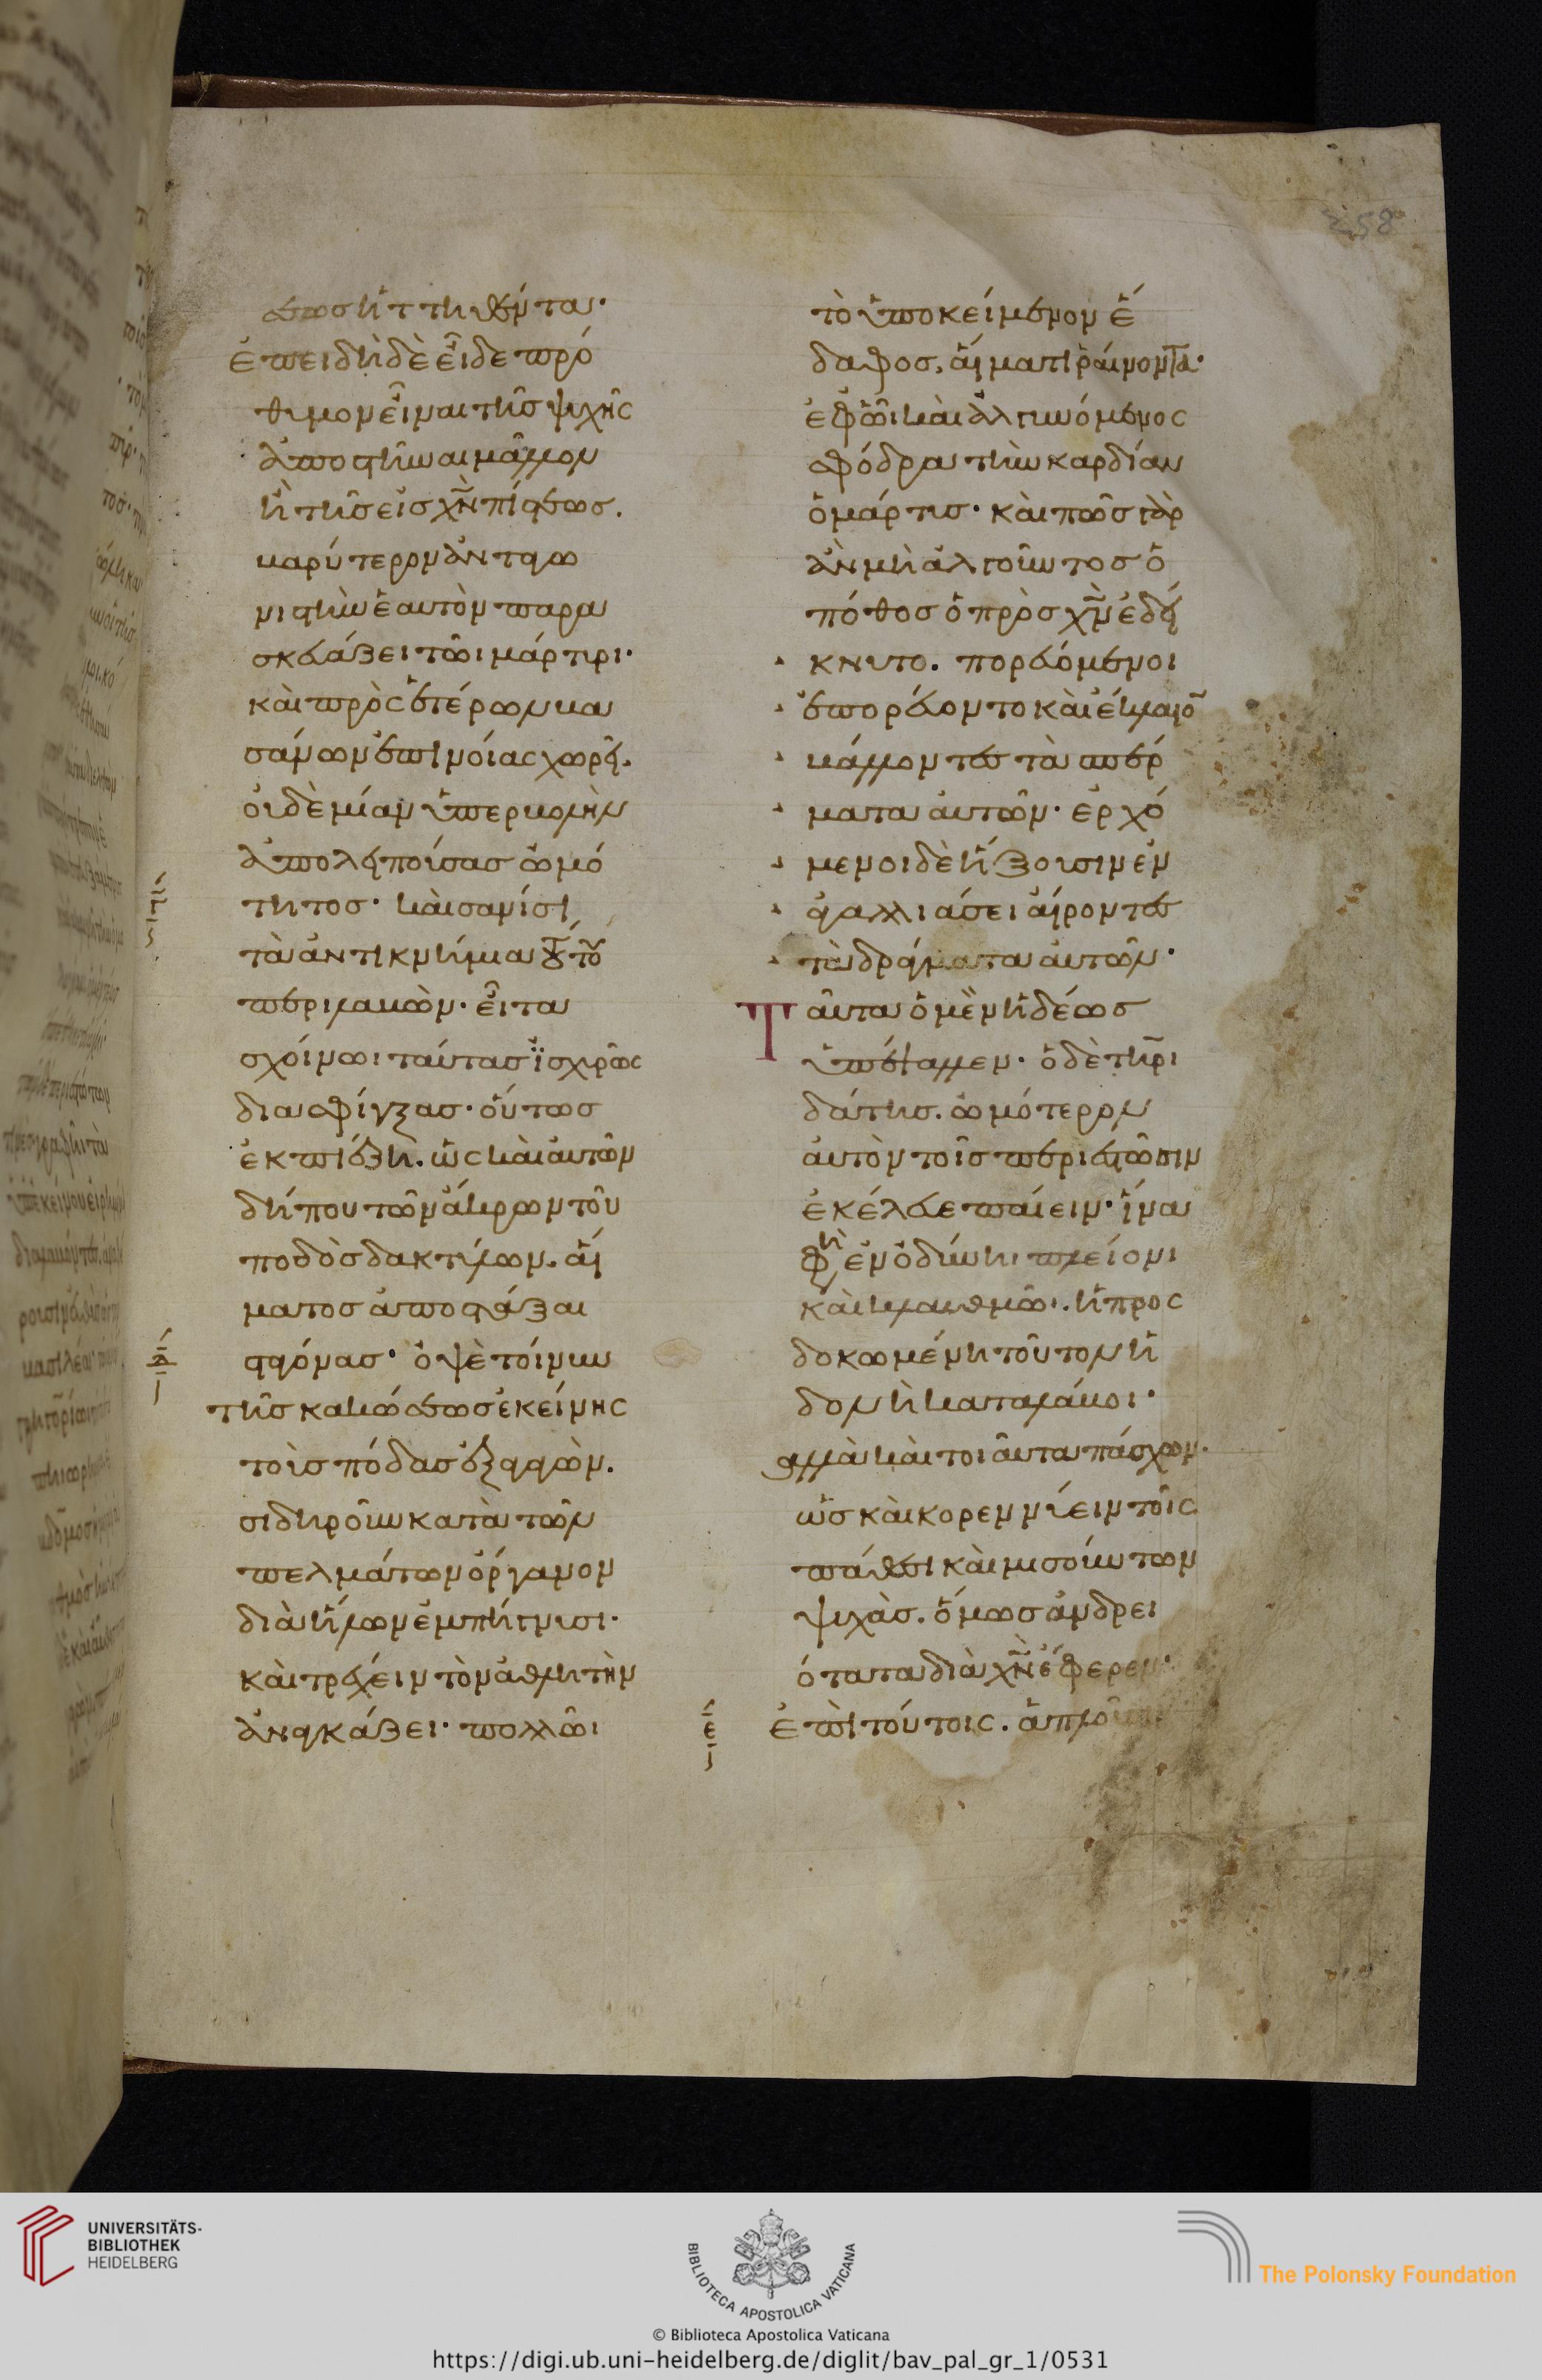 σεως ἡττηθέντα·
ἐπειδὴ δὲ εἶδε πρό
θυμον εἶναι τῆς ψυχῆς
ἀποστῆναι μᾶλλον
ἢ τῆς εἰς χν̄ πίστεως.
βαρύτερον ἀνταγω
νιστὴν ἑαυτὸν παρα
σκευάζει τῶι μάρτυρι·
καὶ πρὸς ἑτέρων βα
σάνων ἐπινοίας χωρεῖ.
οὐδεμίαν ὑπερβολὴν
ἀπολειπούσας ὠμό
τητος· καὶ σανίσι
τὰ ἀντικνήμια τούτου
περιλαβὼν· εἶτα
σχοίνωι ταύτας ἰσχυρῶς
διασφίγξας· οὕτως
ἐκπιέζει. ὡς καὶ αὐτῶν
δήπου τῶν ἄκρων τοῦ
ποδὸς δακτύλων. αἵ
ματος ἀποστάξαι
σταγόνας· ὀψὲ τοίνυν
τῆς κακώσεως ἐκείνης
τοὺς πόδας ἐξαγαγὼν.
σιδηροῦν κατὰ τῶν
πελμάτων ὄργανον
διὰ ἥλων ἐμπήγνυσι·
καὶ τρέχειν τὸν ἀθλητὴν
ἀναγκάζει· πολλῶι
δ
τὸ ὑποκείμενον ἔ
δαφος, αἵματι ῥαίνοντα·
ἐφ ὧι καὶ ἀλγυνόμενος
σφόδρα τὴν καρδίαν
ὁ μάρτυς· καὶ πῶς γὰρ
ἂν μὴ ἀλγοῦντος ὁ
πόθος ὁ πρὸς χν̄ ἐδεί
κνυτο. πορευόμενοι
ἐπορεύοντο καὶ ἔκλαιον
βάλλοντες τὰ σπέρ
ματα αὐτῶν· ἐρχό
μενοι δὲ ἥξουσιν ἐν
ἀγαλλιάσει αἴροντες
τὰ δράγματα αὐτῶν·
Ταῦτα ὁ μὲν ἡδέως
ὑπέψαλλεν· ὁ δὲ τηρι
δάτης. ὠμότερον
αὐτὸν τοῖς περιεστῶσιν
ἐκέλευε παίειν· ἵνα
φη ἐν ὀδύνηι πλείονι
καὶ κλαυθμῶι. ἡ προσ
δοκωμένη τοῦτον ἡ
δονὴ καταλάβοι·
ἀλλὰ καὶ τοιαῦτα πάσχων·
ὡς καὶ κορεννύειν τοῖς
πάθεσι καὶ μισούντων
ψυχὰς. ὅμως ἀνδρει
ότατα διὰ χν̄ ἔφερεν·
ε
Ἐπὶ τούτοις.
258
UNIVERSITÄTS-
BIBLIOTHEK
HEIDELBERG
BIBLIOTECA APOSTOLICA VATICANA
The Polonsky Foundation
© Biblioteca Apostolica Vaticana
https://digi.ub.uni-heidelberg.de/diglit/bav_pal_gr_1/0531